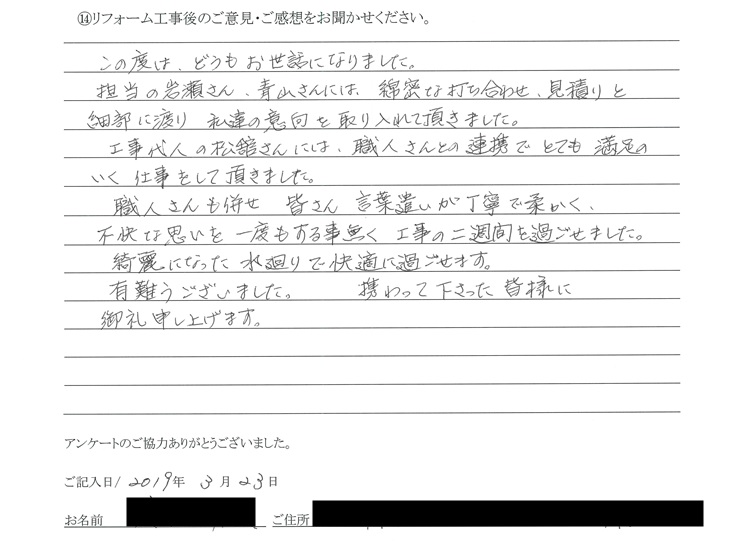 ⑭リフォーム工事後のご意見・ご感想をお聞かせください。
この度は、どうもお世話になりました。
担当の岩瀬さん、青山さんには、綿密な打ち合わせ、見積りと
細部に渡り 私達の意向を取り入れて頂きました。
工事代人の松舘さんには、職人さんとの連携でとても満足の
いく仕事をして頂きました。
職人さんも併せ 皆さん 言葉遣いが丁寧で柔かく、
不快な思いを一度もする事無く 工事の二週間を過ごせました。
綺麗になった水廻りで快適に過ごせます。
有難うございました。 携わって下さった皆様に
御礼申し上げます。
アンケートのご協力ありがとうございました。
ご記入日/ 2019年 3月23日
お名前 ご住所